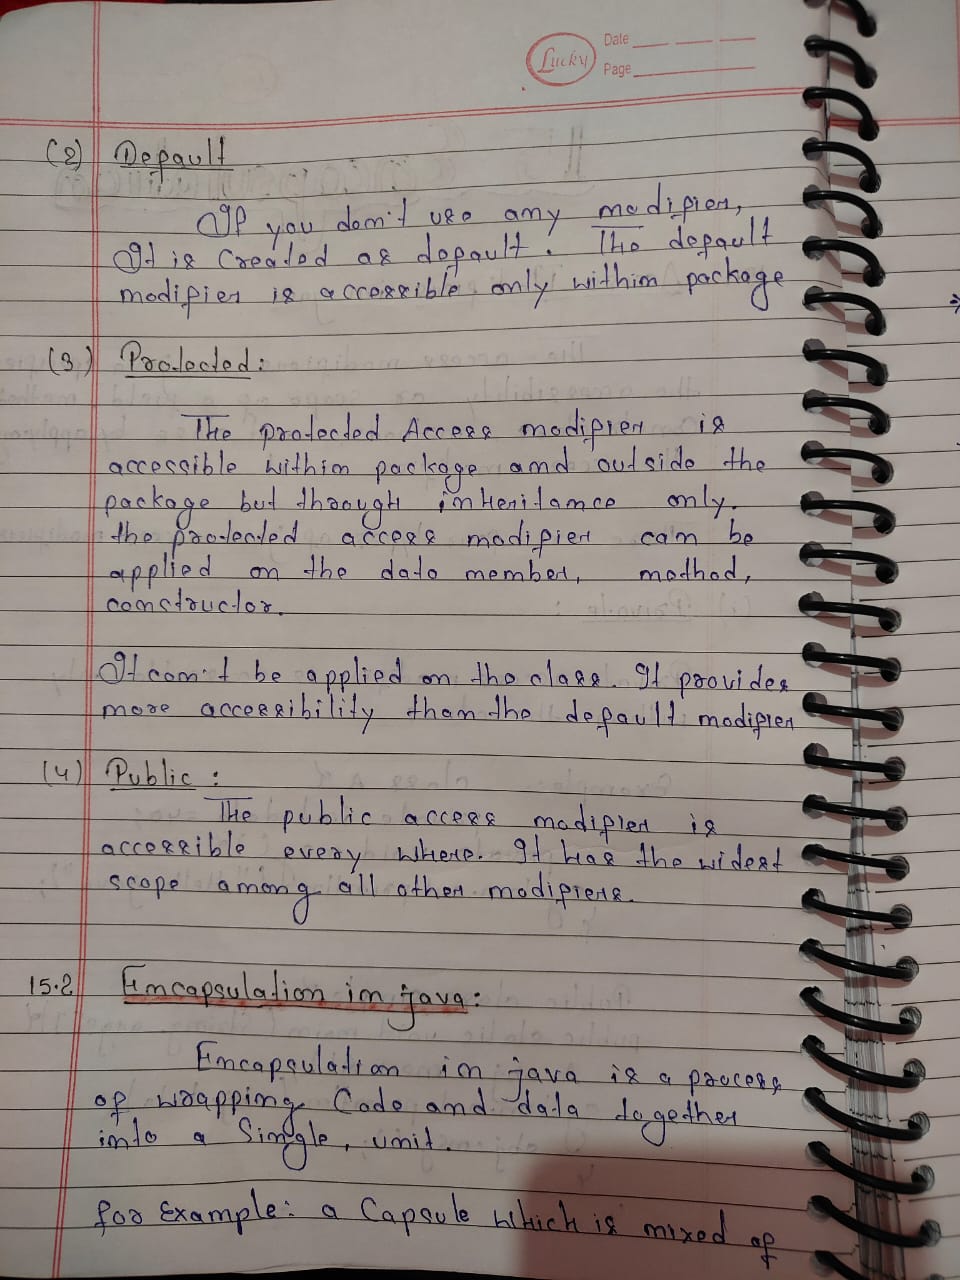 Lucky
Date
Page
(2) Default
If you don't use any modifier,
It is created as default. The default
modifier is accessible only within package
(3) Protected:
The protected Access modifier is
accessible within package and outside the
package but through inheritance only.
the protected access modifier can be
applied on the data member, method,
constructor.
It can't be applied on the class. It provides
more accessibility than the default modifier
(4) Public :
The public access modifier is
accessible every where. It has the widest
scope among all other modifiers.
15.2 Encapsulation in java:
Encapsulation in java is a process
of wrapping Code and data together
into a Single, unit.
for Example: a Capsule which is mixed of